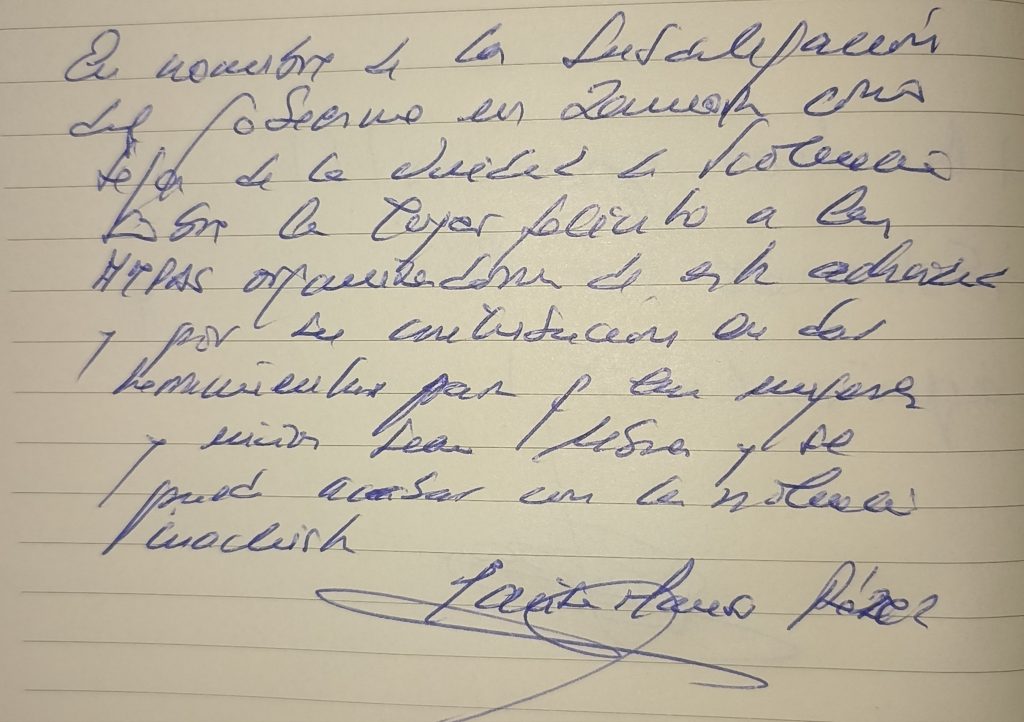 En nombre de la Subdelegación
del Gobierno en Zamora como
Jefa de la Unidad de Violencia
sobre la Mujer felicito a las
AMPAS organizadoras de este
y por su contribución en dar
herramientas para q las mujeres
y niñas sean libres y se
pueda acabar con la violencia
machista
Pérez